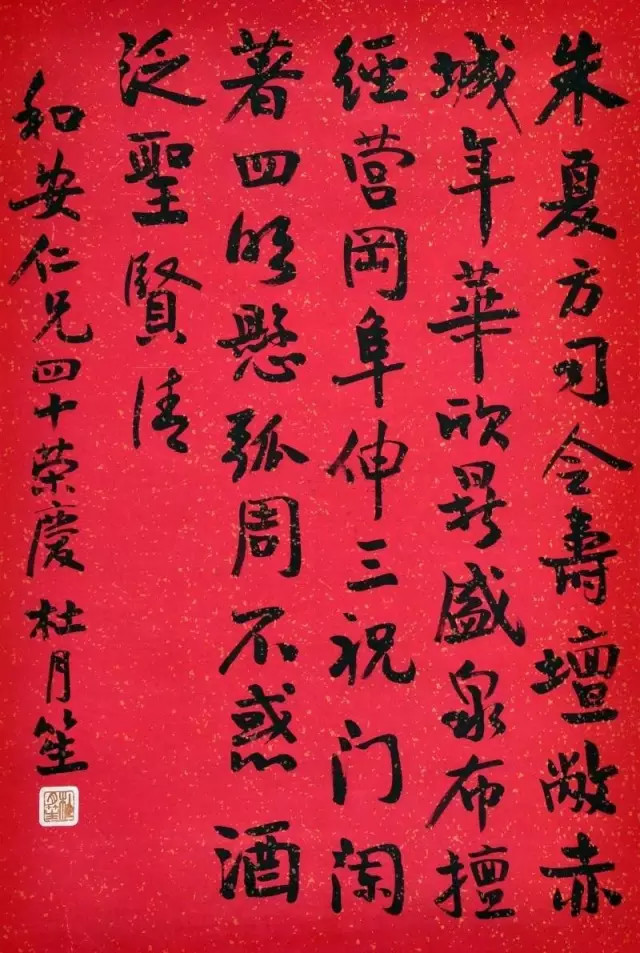 朱夏方司令壽壇敞赤
城年華欣鼎盛泉布擅
經营岡阜伸三祝门闌
著四明懸弧周不惑酒
泛聖賢清
和安仁兄四十荣慶杜月笙